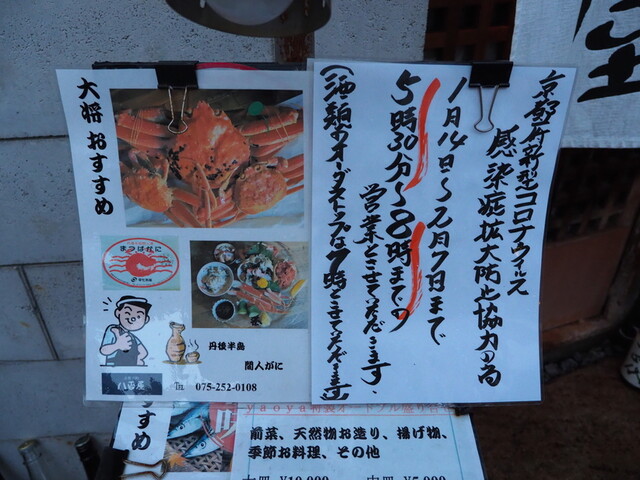 大将 おすすめ
まつばがに
丹後半島
間人がに
八百屋
TEL 075-252-0108
京都府新型コロナウィルス
感染症拡大防止協力の為
1月14日〜2月7日まで
5時30分〜8時までの
営業とさせていただきます、
(酒類のオーダーストップは7時とさせていただきます)
おすすめ
前菜、天然物お造り、揚げ物、
季節お料理、その他
¥10,000
¥5,000
屋